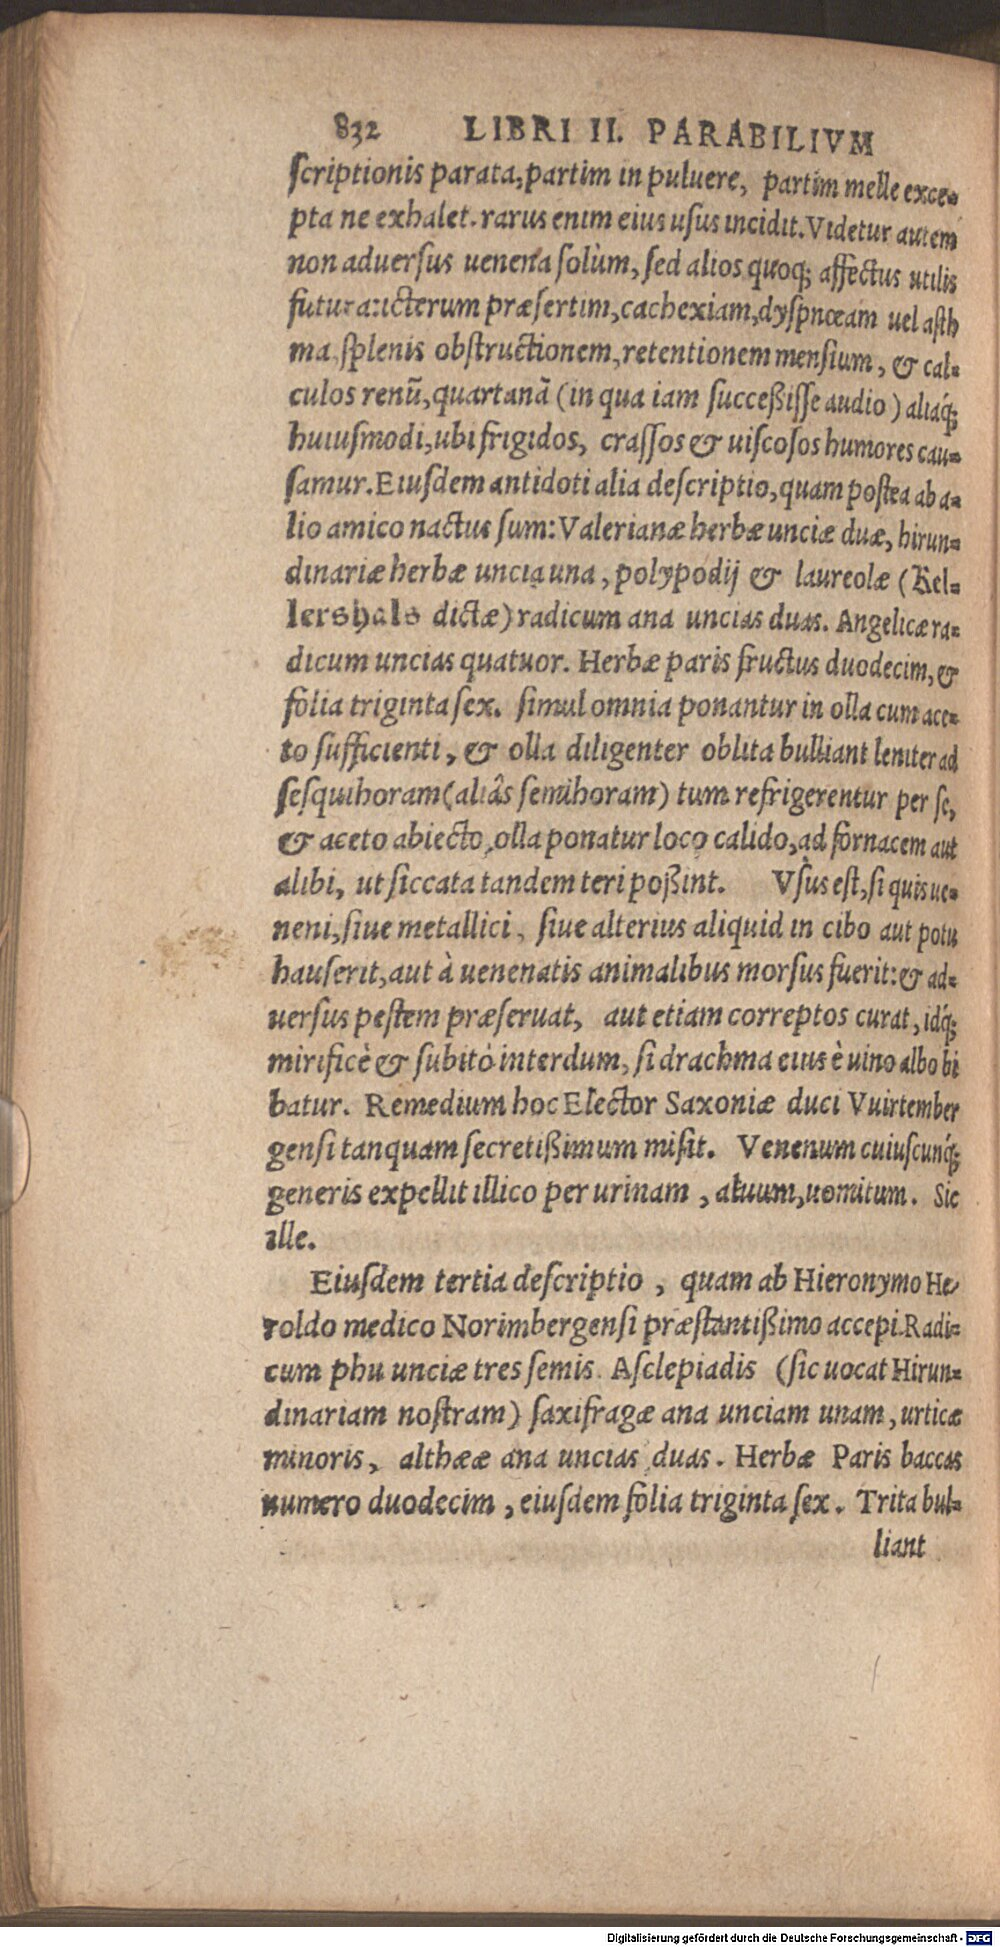 832 LIBRI II. PARABILIVM
scriptionis parata, partim in puluere, partim melle exce-
pta ne exhalet. rarus enim eius usus incidit. Videtur autem
non aduersus uenena solùm, sed alios quoq; affectus utilis
futura: icterum præsertim, cachexiam, dyspnœam uel asth
ma, splenis obstructionem, retentionem mensium, & cal-
culos renũ, quartanã (in qua iam succeßisse audio) aliaq́;
huiusmodi, ubi frigidos, crassos & uiscosos humores cau-
samur. Eiusdem antidoti alia descriptio, quam postea ab a-
lio amico nactus sum: Valerianæ herbæ unciæ duæ, hirun-
dinariæ herbæ uncia una, polypodij & laureolæ (Kel-
lershals dictæ) radicum ana uncias duas. Angelicæ ra-
dicum uncias quatuor. Herbæ paris fructus duodecim, &
folia triginta sex. simul omnia ponantur in olla cum ace-
to sufficienti, & olla diligenter oblita bulliant leniter ad
sesquihoram (aliâs semihoram) tum refrigerentur per se,
& aceto abiecto, olla ponatur loco calido, ad fornacem aut
alibi, ut siccata tandem teri poßint. Vsus est, si quis ue-
neni, siue metallici, siue alterius aliquid in cibo aut potu
hauserit, aut à uenenatis animalibus morsus fuerit: & ad-
uersus pestem præseruat, aut etiam correptos curat, idq́;
mirificè & subitò interdum, si drachma eius è uino albo bi
batur. Remedium hoc Elector Saxoniæ duci Vuirtember
gensi tanquam secretißimum misit. Venenum cuiuscunq́;
generis expellit illico per urinam, aluum, uomitum. Sic
ille.
Eiusdem tertia descriptio, quam ab Hieronymo He-
roldo medico Norimbergensi præstantißimo accepi. Radi-
cum phu unciæ tres semis. Asclepiadis (sic uocat Hirun-
dinariam nostram) saxifragæ ana unciam unam, urticæ
minoris, althææ ana uncias duas. Herbæ Paris baccas
numero duodecim, eiusdem folia triginta sex. Trita bul-
liant
Digitalisierung gefördert durch die Deutsche Forschungsgemeinschaft - DFG